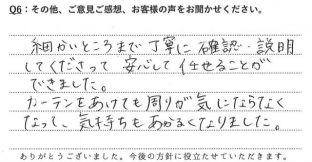 Q6：その他、ご意見ご感想、お客様の声をお聞かせください。
細かいところまで丁寧に確認・説明
してくださって 安心して任せることが
できました。
カーテンをあけても周りが気にならなく
なって、気持ちもあかるくなりました。
ありがとうございました。今後の方針に役立たせていただきます。